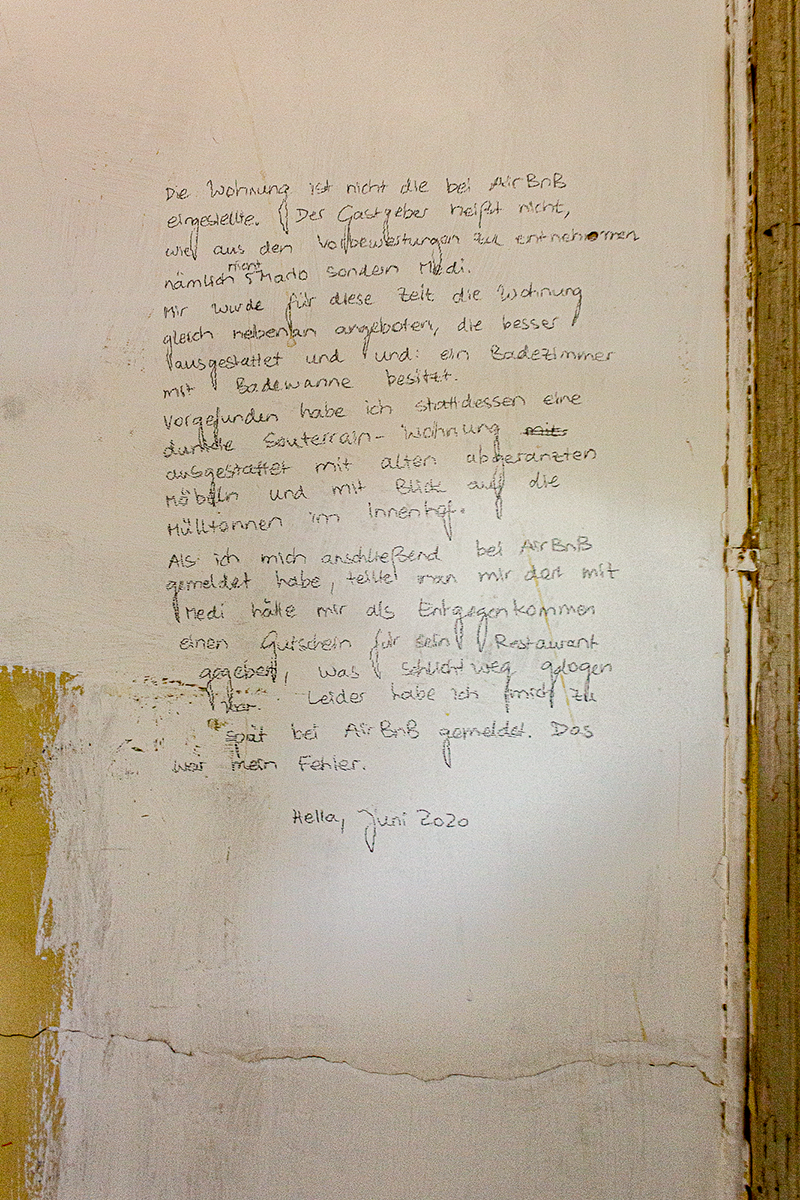 Die Wohnung ist nicht die bei AirBnB
eingestellte. Der Gastgeber heißt nicht,
wie aus den Vorbewertungen zu entnehmen
nämlich nicht Mado sondern Medi.
Mir wurde für diese Zeit die Wohnung
gleich nebenan angeboten, die besser
ausgestattet und und: ein Badezimmer
mit Badewanne besitzt.
Vorgefunden habe ich stattdessen eine
dunkle Souterrain-Wohnung
ausgestattet mit alten abgeranzten
Möbeln und mit Blick auf die
Mülltonnen im Innenhof.
Als ich mich anschließend bei AirBnB
gemeldet habe, teilte man mir mit
Medi hätte mir als Entgegenkommen
einen Gutschein für sein Restaurant
gegeben, was schlichtweg gelogen
war. Leider habe ich mich zu
spät bei AirBnB gemeldet. Das
war mein Fehler.
Hella, Juni 2020